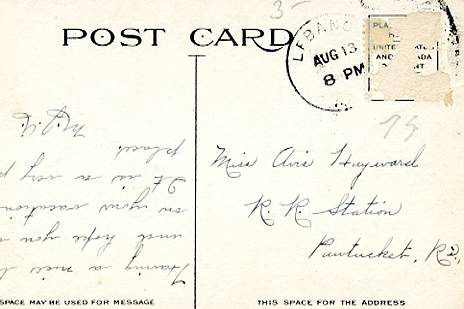 3-
POST CARD
LEBANO
AUG 13
8 PM
PLA
UNITE STATES
AND ADA
NT
75
Miss Avis Hayward
R. R. Station
Pawtucket, R.I.
Having a nice
and hope you
on your vacation
It is a very p
place.
SPACE MAY BE USED FOR MESSAGE
THIS SPACE FOR THE ADDRESS